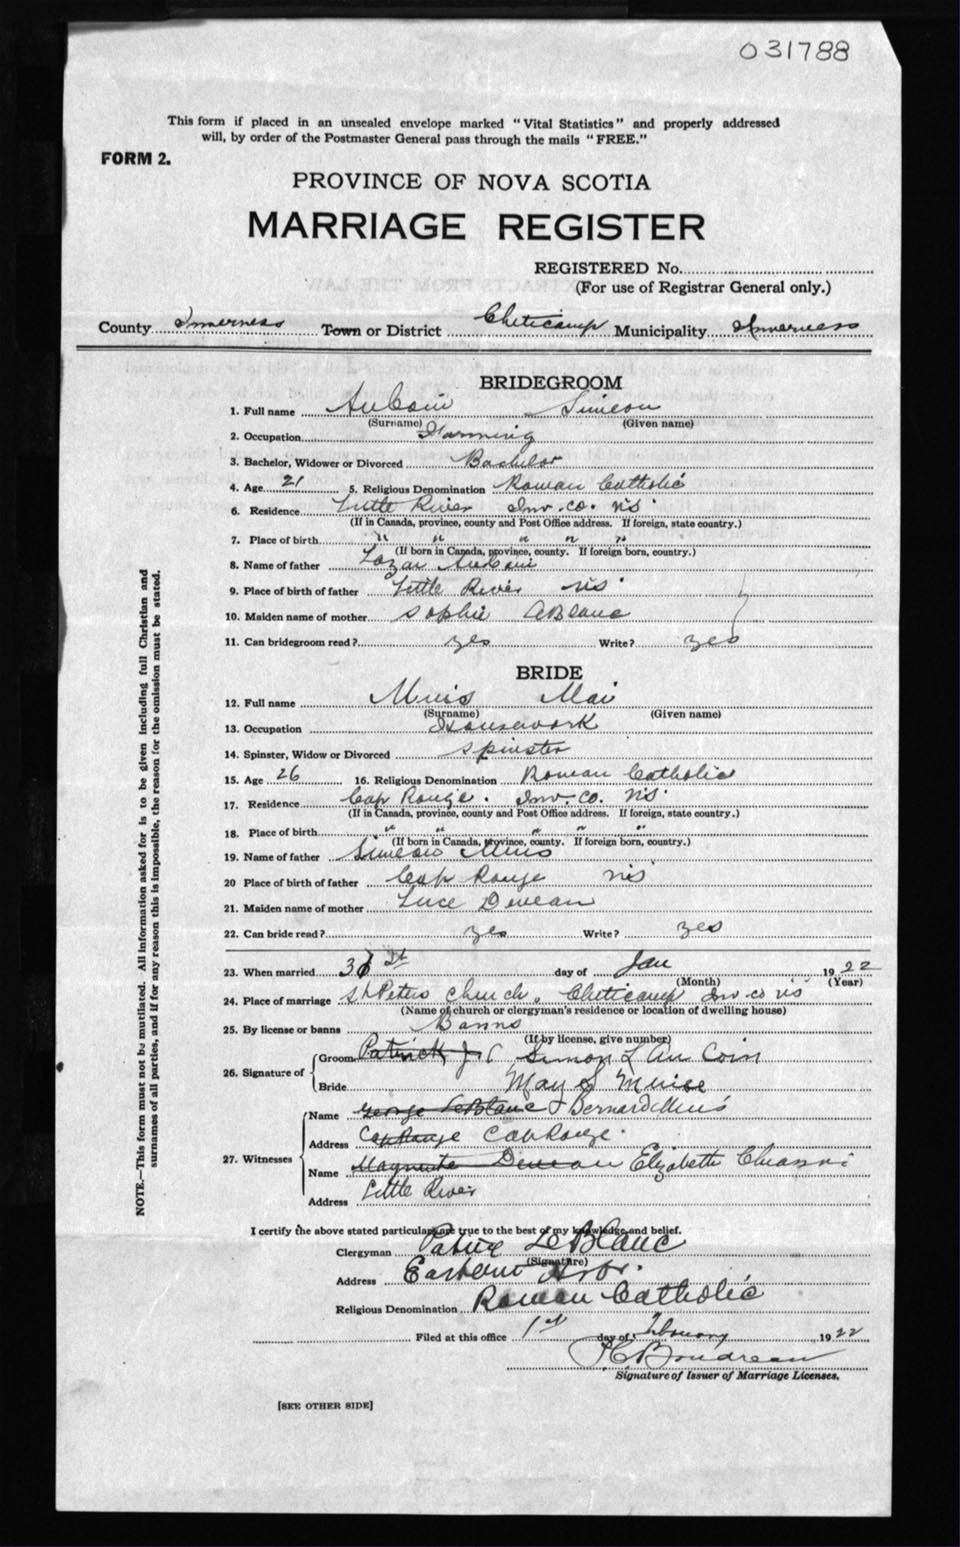 031788
This form if placed in an unsealed envelope marked "Vital Statistics" and properly addressed
will, by order of the Postmaster General pass through the mails "FREE."
FORM 2.
PROVINCE OF NOVA SCOTIA
MARRIAGE REGISTER
REGISTERED No.
(For use of Registrar General only.)
County Inverness Town or District Cheticamp Municipality Inverness
BRIDEGROOM
1. Full name AuCoin Simeon
(Surname) (Given name)
2. Occupation Farming
3. Bachelor, Widower or Divorced Bachelor
4. Age 21 5. Religious Denomination Roman Catholic
6. Residence Little River Inv. Co. NS
(If in Canada, province, county and Post Office address. If foreign, state country.)
7. Place of birth " " " " "
(If born in Canada, province, county. If foreign born, country.)
8. Name of father Lazar AuCoin
9. Place of birth of father Little River NS
10. Maiden name of mother Sophie
11. Can bridegroom read? yes Write? yes
BRIDE
12. Full name Muis Mai
(Surname) (Given name)
13. Occupation Housework
14. Spinster, Widow or Divorced Spinster
15. Age 26 16. Religious Denomination Roman Catholic
17. Residence Cap Rouge. Inv. Co. NS.
(If in Canada, province, county and Post Office address. If foreign, state country.)
18. Place of birth " " " " "
(If born in Canada, province, county. If foreign born, country.)
19. Name of father Simeon Muis
20 Place of birth of father Cap Rouge NS
21. Maiden name of mother Luce Deveau
22. Can bride read? yes Write? yes
23. When married 31st day of Jan 1922
(Month) (Year)
24. Place of marriage St Peters Church, Cheticamp Inv Co NS
(Name of church or clergyman's residence or location of dwelling house)
25. By license or banns Banns
(If by license, give number)
26. Signature of Groom Patrick J Simon L Au Coin
Bride May S Muise
27. Witnesses Name George LeBlanc Bernard Muis
Address Cap Rouge Cap Rouge.
Name Marguerite Deveau Elizabeth
Address Little River
I certify the above stated particulars are true to the best of my knowledge and belief.
Clergyman Patrice LeBlanc
(Signature)
Address
Religious Denomination Roman Catholic
Filed at this office 1st day of February 1922
Boudreau
Signature of Issuer of Marriage Licenses.
[SEE OTHER SIDE]
NOTE.—This form must not be mutilated. All information asked for is to be given including full Christian and
surnames of all parties, and if for any reason this is impossible, the reason for the omission must be stated.